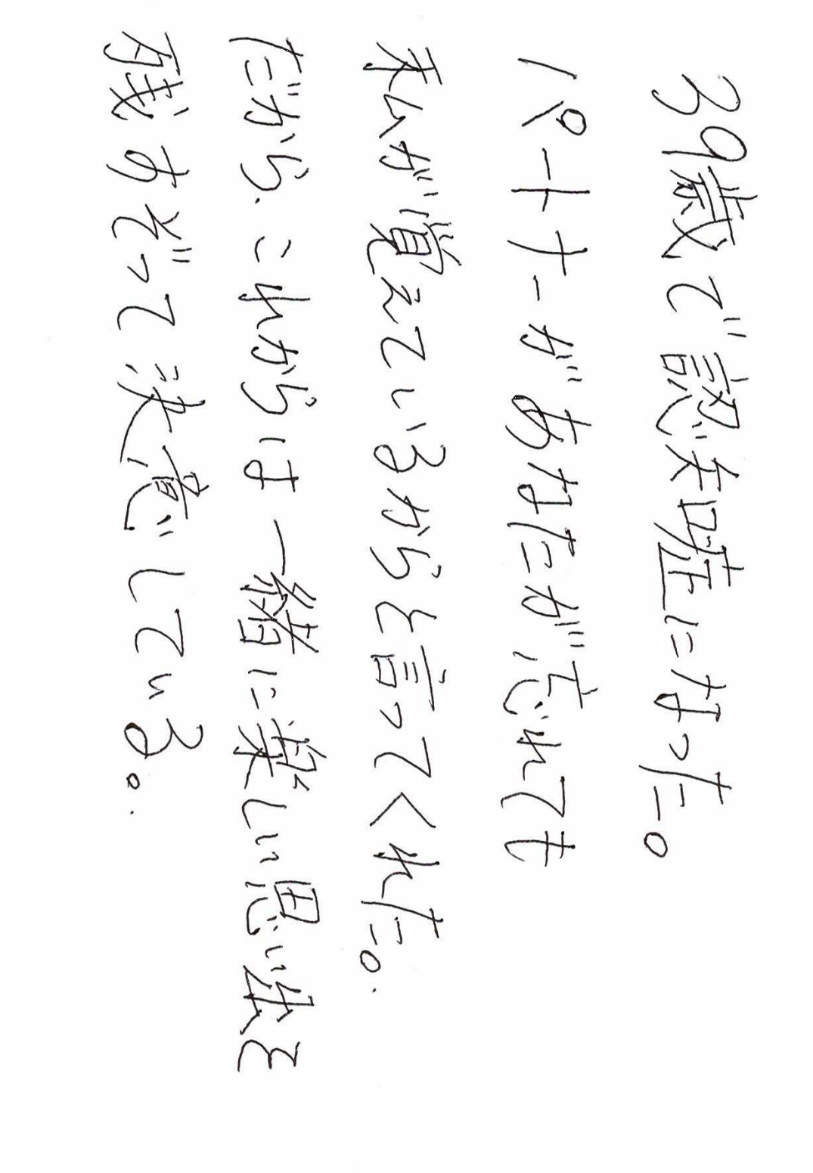 39歳で認知症になった。
パートナーがあなたが忘れても
私が覚えているからと言ってくれた。
だから、これからは一緒に楽しい思い出を
残すぞって決意している。